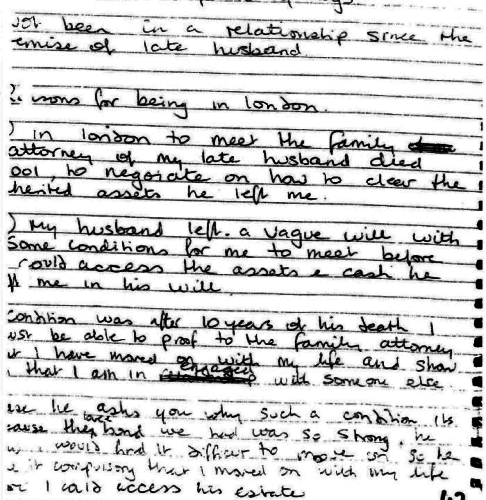 been in a relationship since the
emise of late husband
sons for being in london.
) in london to meet the family
attorney of my late husband died
001, to negoiate on how to clear the
herited assets he left me.
) My husband left. a vague will with
Some conditions for me to meet before
could access the assets & cash he
me in his will.
condition was after 10 years of his death I
ust be able to proof to the family attorney
I have moved on with my life and show
that I am in engaged with someone else
he asks you why such a condition its
cause the love bond we had was so strong, he
would find it difficult to move on so he
it compulsory that I moved on with my life
I could access his estate